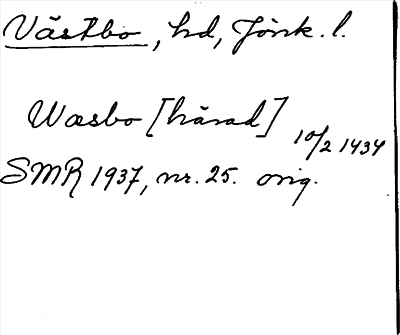 Västbo, hd, Jönk. l.
Wæsbo [härad] 10/2 1434
SMR 1937, nr. 25. orig.